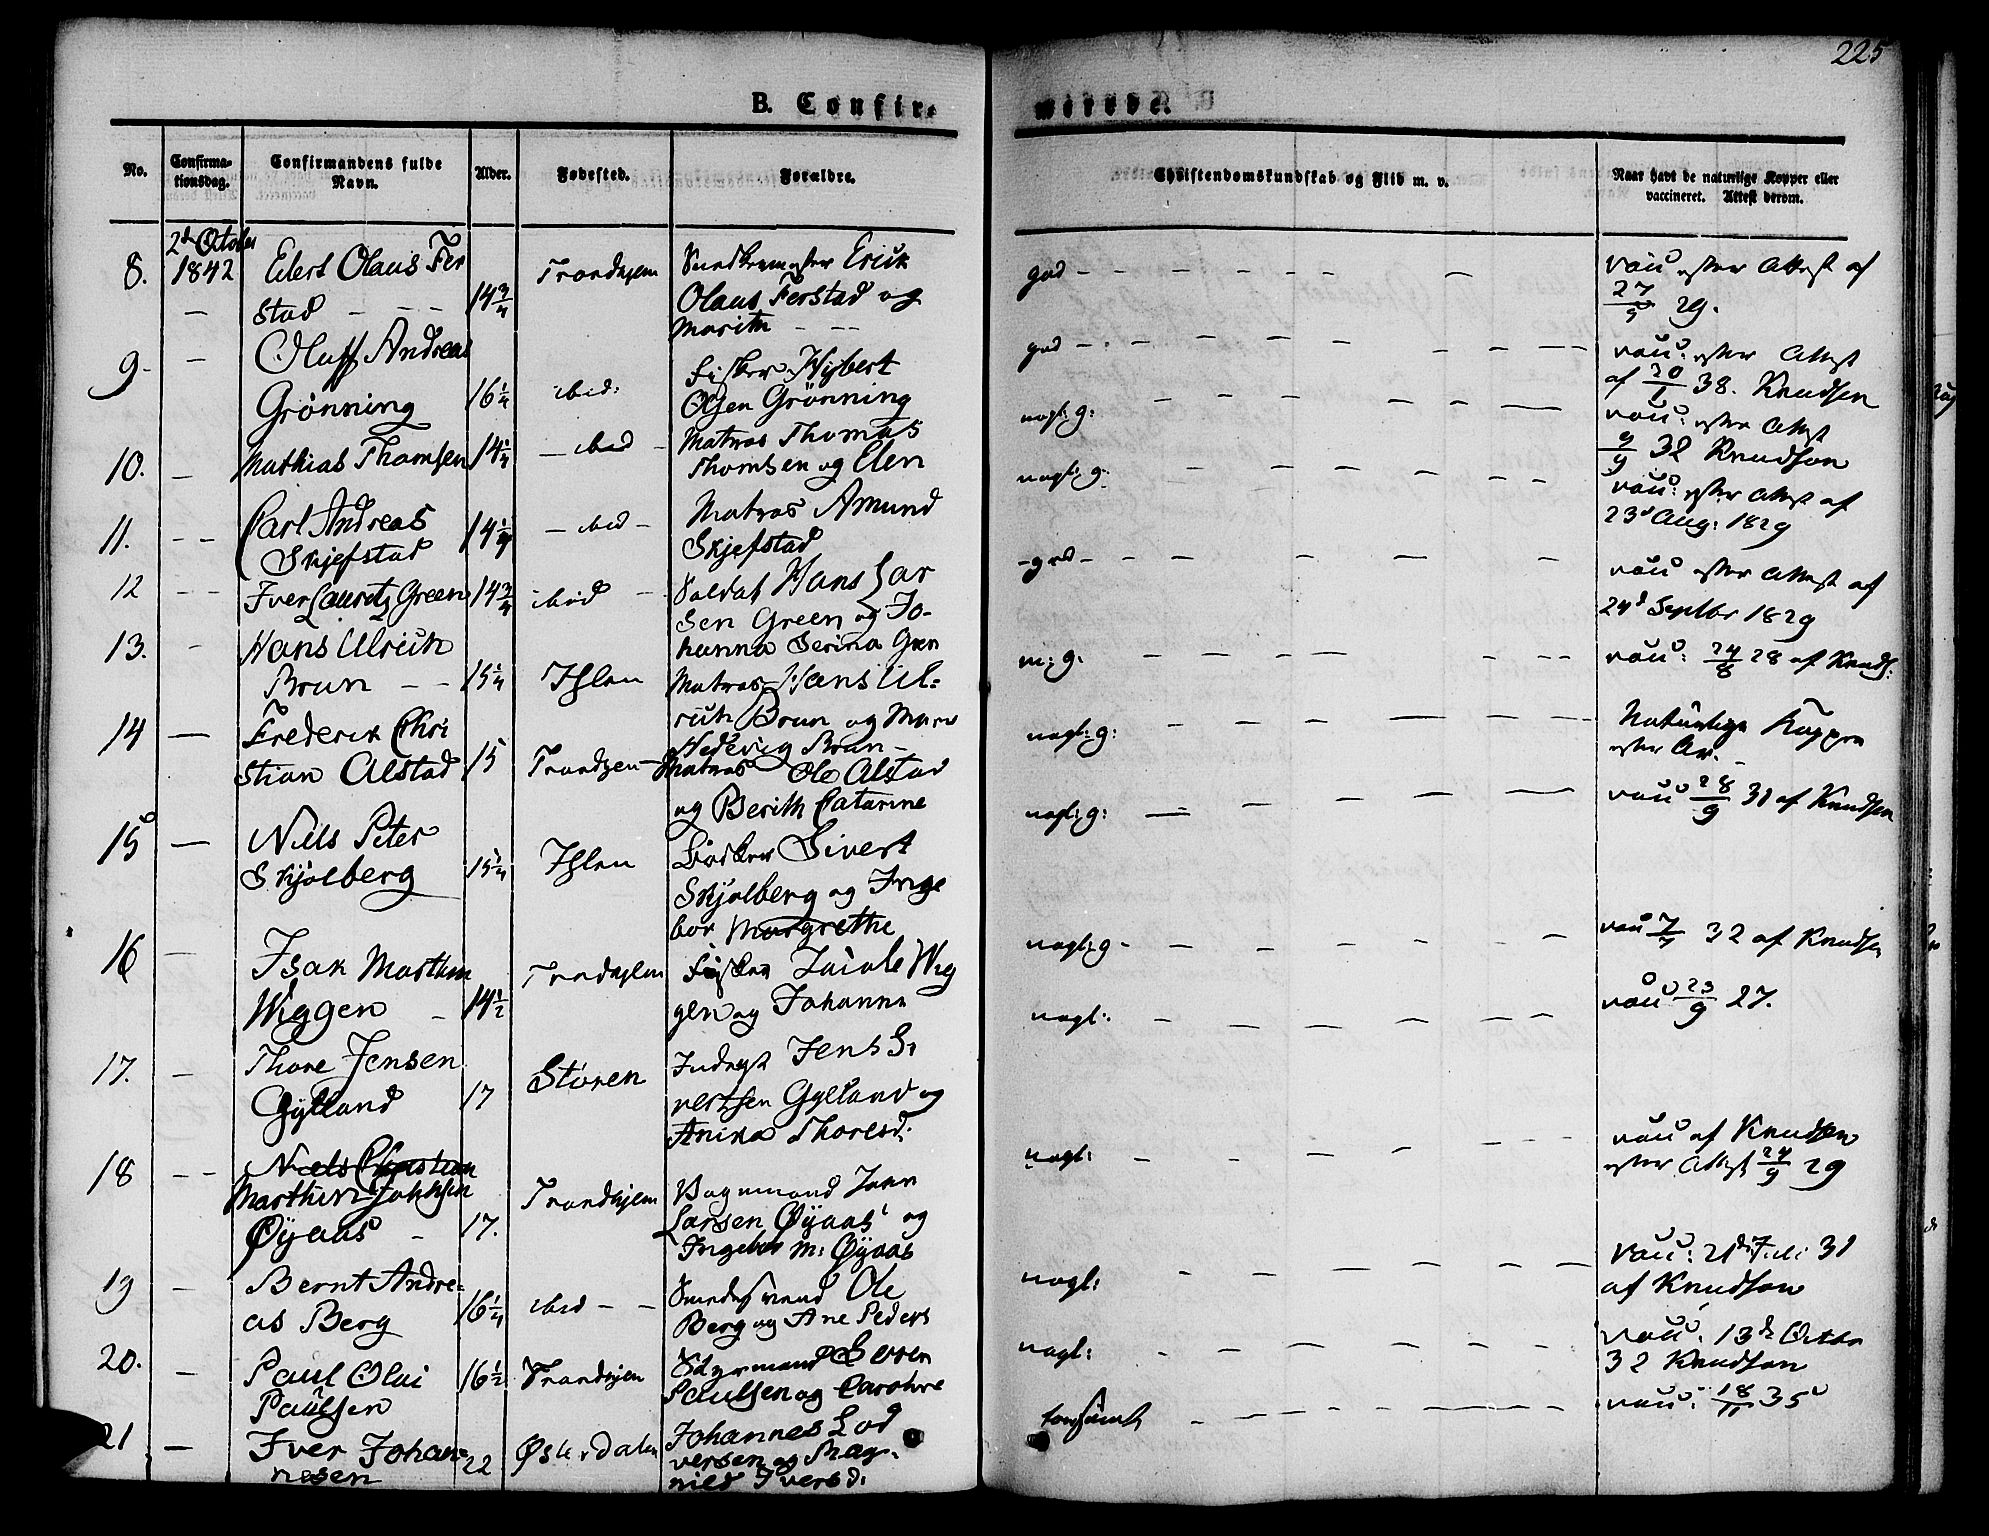 225
B. Confir-
merede.
No.
Confirma-
tionsdag.
Confirmandens fulde
Navn.
Alder.
Fødested.
Forældre.
Christendomskundskab og Flid m. v.
Naar havt de naturlige Kopper eller
vaccineret. Attest derom.
8.
2d October
1842
Edert Olaus Fer
stad
14 3/4
Trondhjem
Erick
Olaus Ferstad og
Marith
god
vacc efter Attest af
27/5 29.
9.
Oluff Andreas
Grönning
16 1/4
ibid:
Fisker Hybert
Olsen Grönning
god
vacc: efter Attest
af 20/1 38. Knudsen
10.
Mathias Thomsen
14 1/4
ibid
Matros Thomas
Thomsen og Elen
nogl: g:
vacc: efter Attest
9/9 32 Knudson
11.
Carl Andreas
Skjefstad
14 1/4
ibid
Matros Amund
Skjefstad
nogl: g.
vacc: efter Attest af
23d Aug: 1829
12
Iver Lauritz Green
14 3/4
ibid
Soldat Hans Lar
sen Green og Jo-
hanna Serina Gren
god
vacc efter Attest af
24d Septbr 1829
13.
Hans Ulrich
Brun
15 1/4
Ihlen
Matros Hans Ul-
rich Brun og
Hedevig Brun
m: g:
vacc: 24/8 28 af Knuds:
14
Frederik Chri
stian Alstad
15
Trondhjem
Matros Ole Alstad
og Berith Catarine
nogl: g:
Naturlige Kopper
efter Ar.
15
Niels Peter
Skjolberg
15 1/4
Ihlen
Sivert
Skjolberg og Inge
bor Margrethe
nogl: g:
vacc 28/9 31 af Knudsen
16
Isak Marthin
Wiggen
14 1/2
Trondhjem
Fisker Jacob Wig
gen og Johanna
nogl: g
vacc 7/7 32 af Knudsen
17.
Thore Jensen
Gylland
17
Stören
Inderst Jens Si
vertsen Gylland og
Anika Thoresd.
nogl:
vacc 23/9 27.
18
Niels Christian
Marthin Johnsen
Øyaas
17.
Trondhjem
Larsen Øyaas og
Ingebor M: Øyaas
nogl:
vacc af Knudsen
efter Attest 24/9 29
19
Bernt Andre-
as Berg
16 1/4
ibid
Smedsvend Ole
Berg og Ane Peders
nogl:
vacc: 21de Juli 31
af Knudson
20.
Paul Olai
Paulsen
16 1/2
Trondhjem
Styrmand Soren
Paulsen og Caroline
nogl:
vacc. 13de Octbr
32 Knudson
21
Iver Johan-
nesen
22
Østerdalen
Johannes Lod
versen og Mag-
nild Iversd:
vacc: 18/11 35